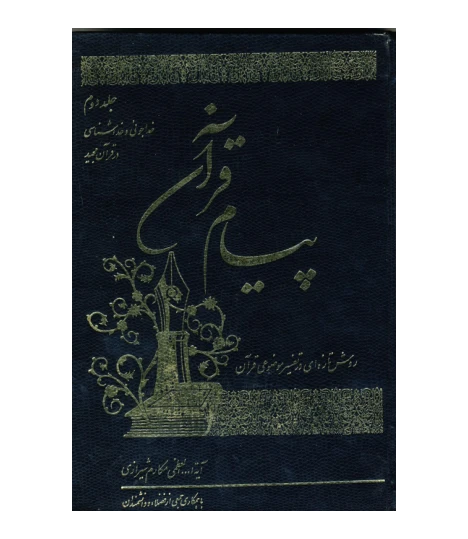 جلد دوم
خداجوئی و خداشناسی
در قرآن مجید
پیام قرآن
روش تازه‌ای در تفسیر موضوعی قرآن
آیة ا... العظمی مکارم شیرازی
با همکاری جمعی از فضلاء و دانشمندان